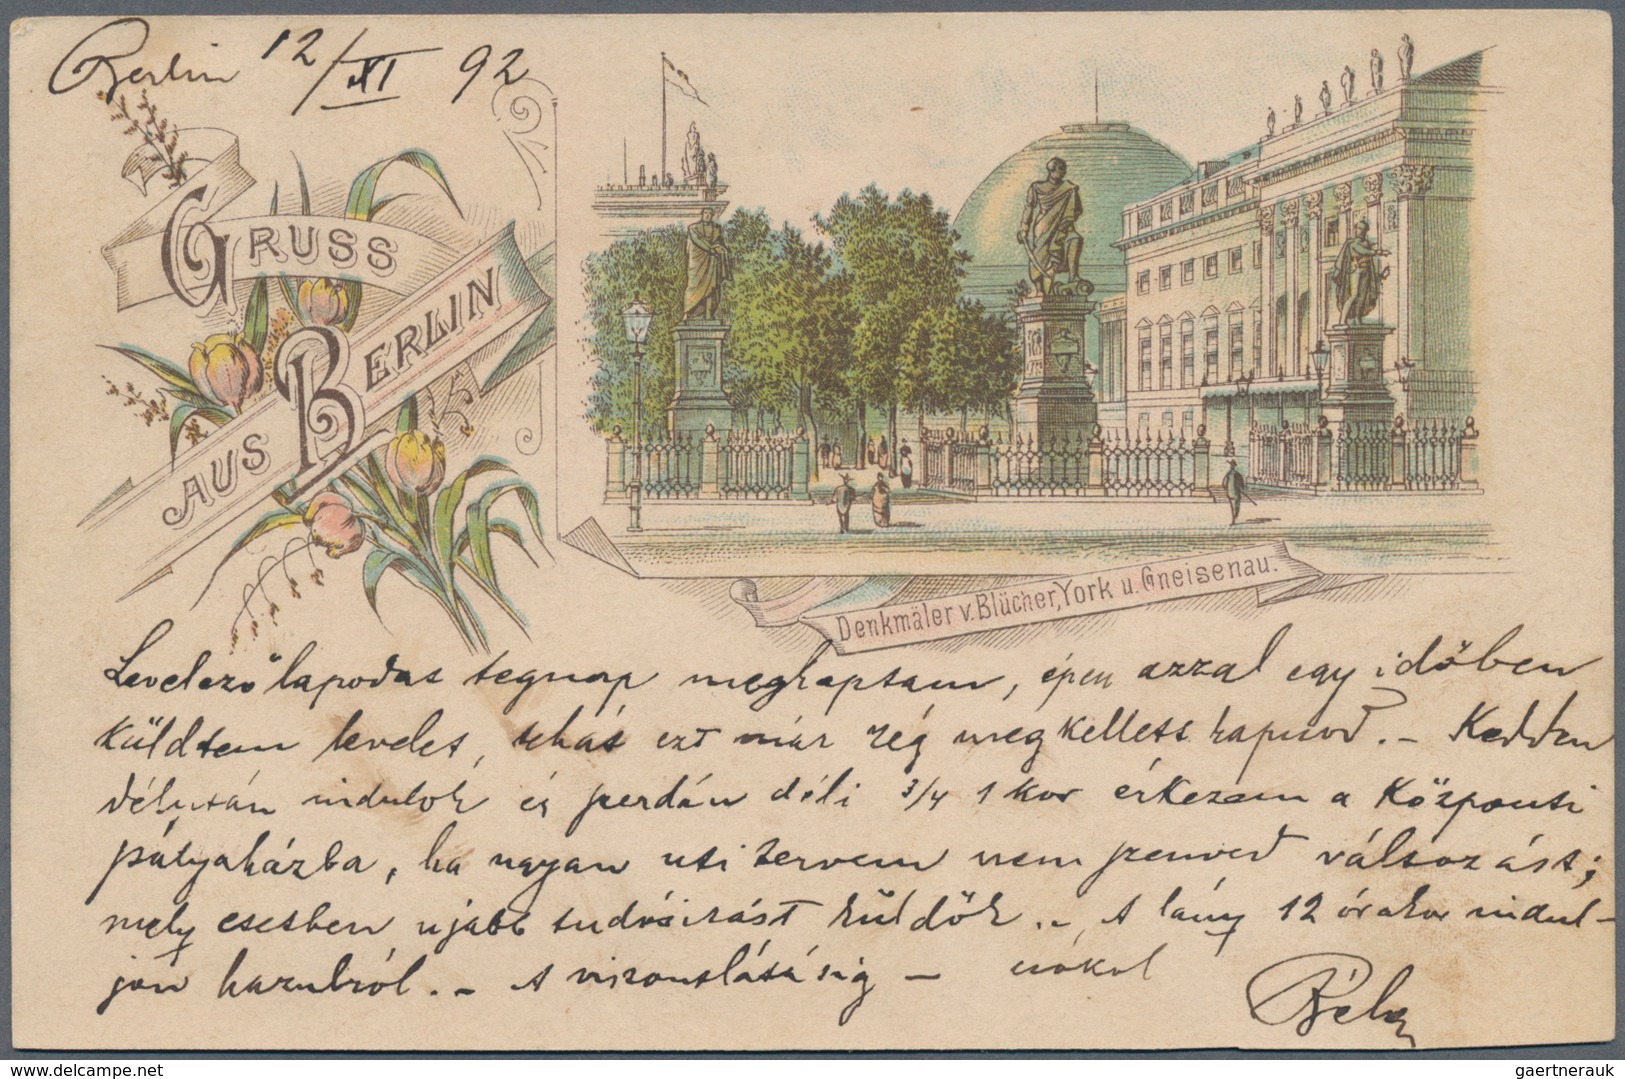 Berlin 12/XI 92
GRUSS
AUS BERLIN
Denkmäler v. Blücher, York u. Gneisenau.
Levelező lapodat tegnap megkaptam, épen azzal egy időben
küldtem levelet, tehát ezt már rég megkellett kapnod. – Kedden
délután indulok és szerdán déli 3/4 1 kor érkezem a Központi
pályaházba, ha ugyan uti tervem nem szenved változást;
mely esetben ujabb tudósitást küldök. – A lány 12 órakor indul-
jon hazulról. – A viszontlátásig – csókol
Béla
www.delcampe.net
gaertnerauk